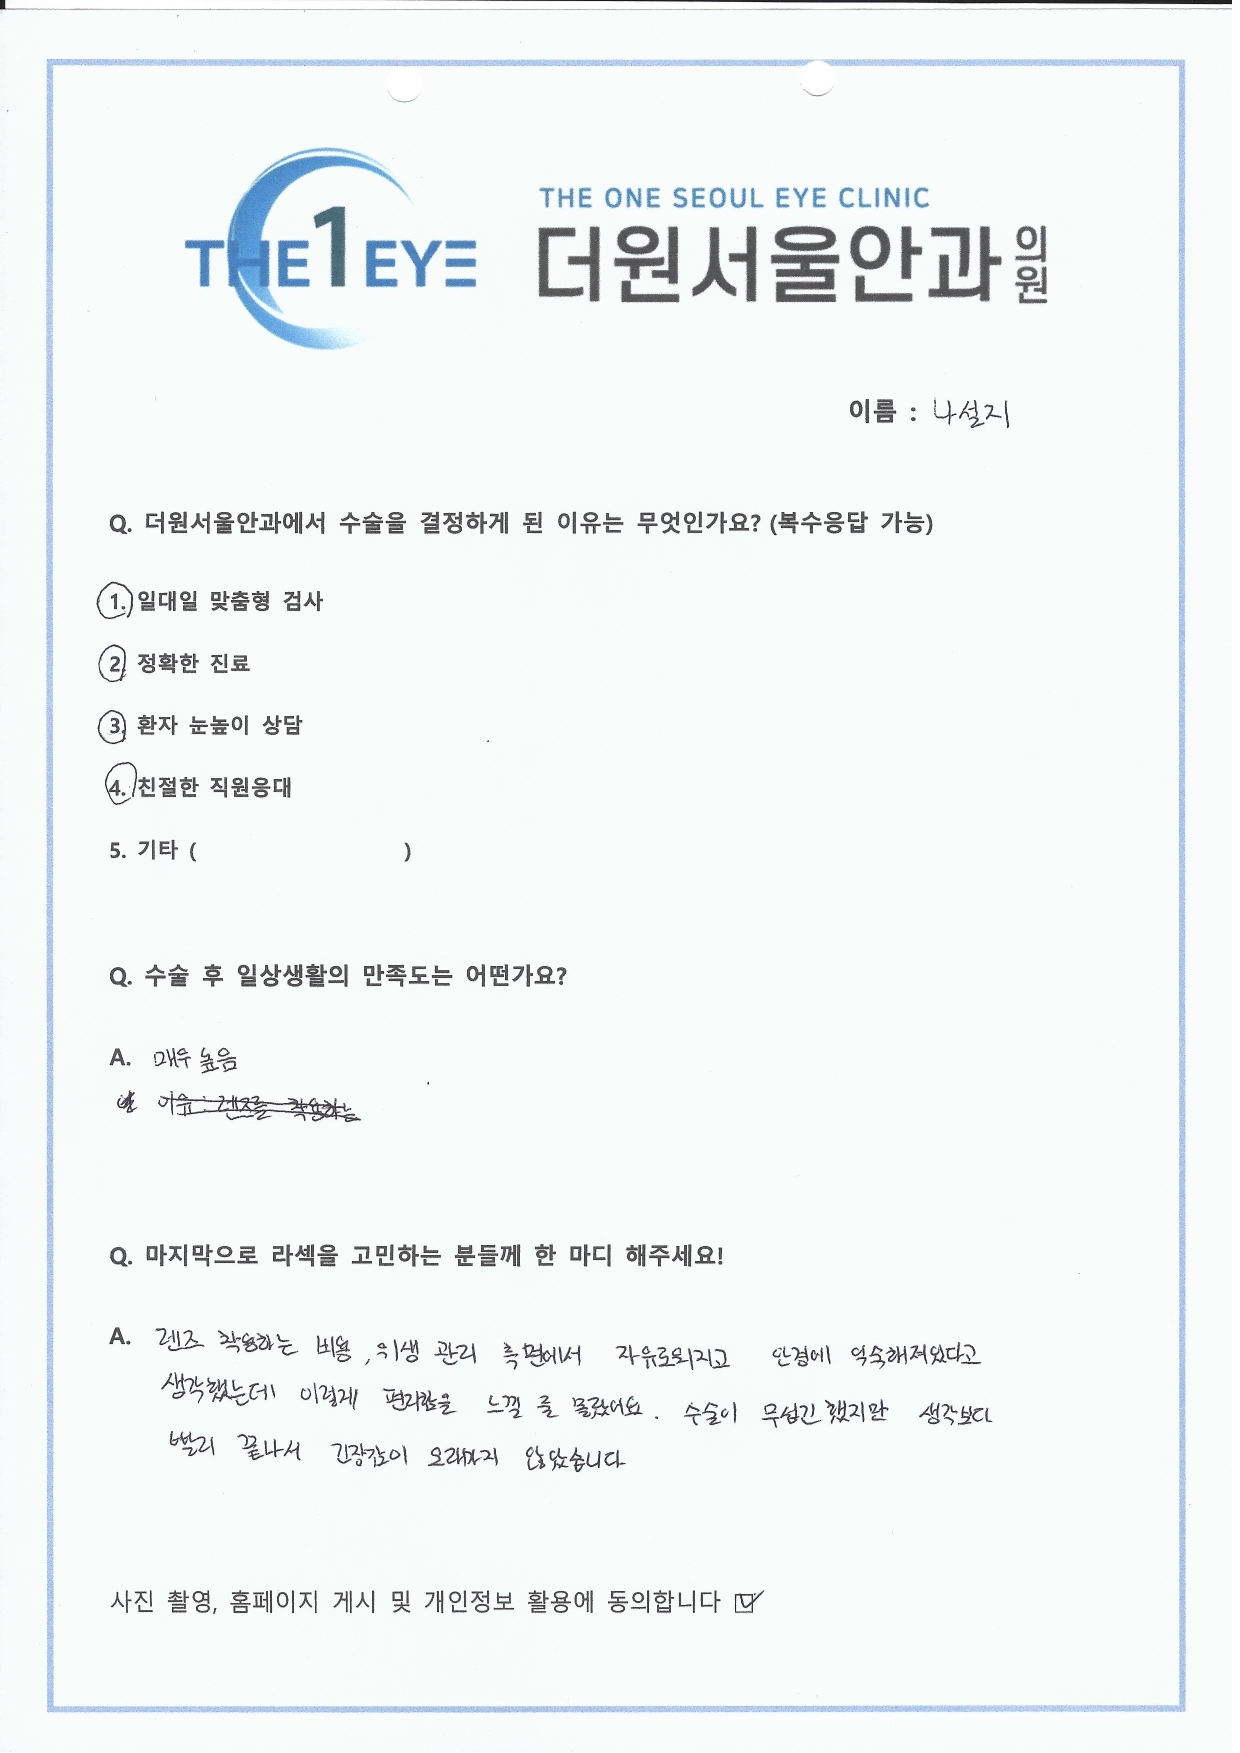 THE1EYE
THE ONE SEOUL EYE CLINIC
더원서울안과의원
이름 : 나설지
Q. 더원서울안과에서 수술을 결정하게 된 이유는 무엇인가요? (복수응답 가능)
1. 일대일 맞춤형 검사
2. 정확한 진료
3. 환자 눈높이 상담
4. 친절한 직원응대
5. 기타 ( )
Q. 수술 후 일상생활의 만족도는 어떤가요?
A. 매우 높음
이유 : 렌즈를 착용하는
Q. 마지막으로 라섹을 고민하는 분들께 한 마디 해주세요!
A. 렌즈 착용하는 비용, 위생 관리 측면에서 자유로워지고 안경에 익숙해져있다고
생각했는데 이렇게 편리함을 느낄 줄 몰랐어요. 수술이 무섭긴 했지만 생각보다
빨리 끝나서 긴장감이 오래가지 않았습니다
사진 촬영, 홈페이지 게시 및 개인정보 활용에 동의합니다 ☑